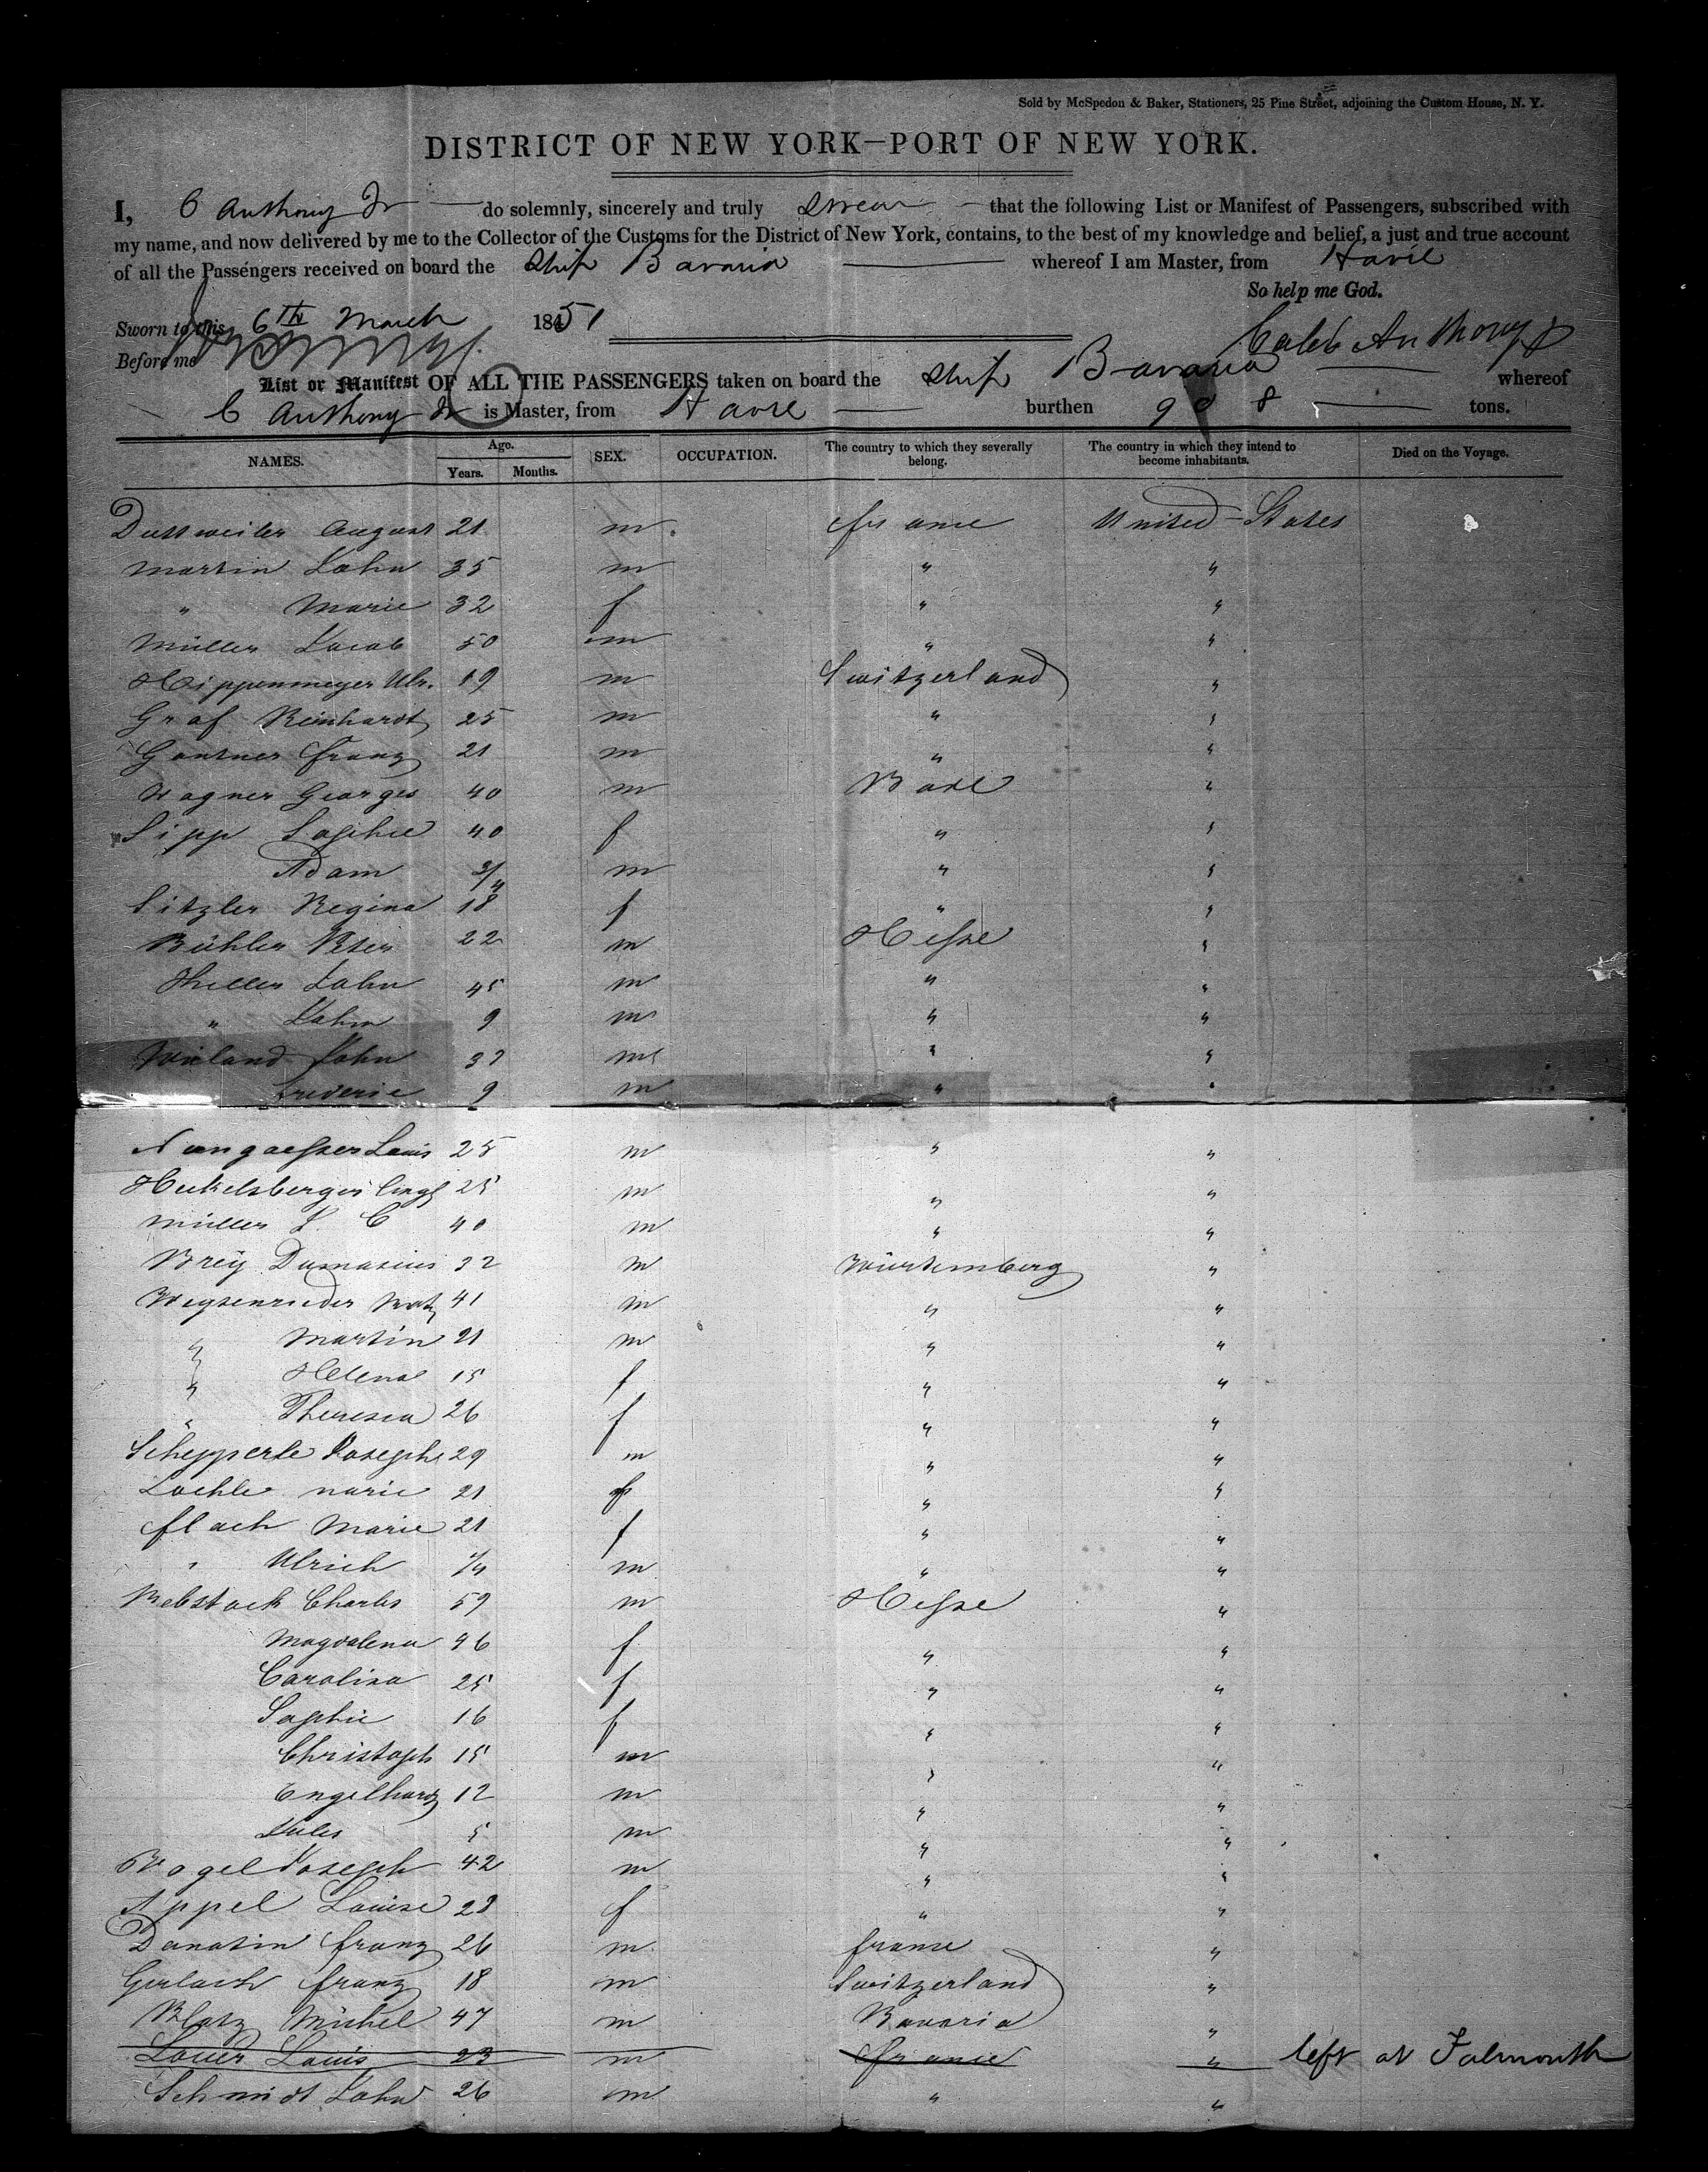 Sold by McSpedon & Baker, Stationers, 25 Pine Street, adjoining the Custom House, N. Y.
DISTRICT OF NEW YORK—PORT OF NEW YORK.
I, C Anthony Jr do solemnly, sincerely and truly swear that the following List or Manifest of Passengers, subscribed with
my name, and now delivered by me to the Collector of the Customs for the District of New York, contains, to the best of my knowledge and belief, a just and true account
of all the Passengers received on board the Ship Bavaria whereof I am Master, from Havre
So help me God.
Sworn to this 6th March 1851
Caleb Anthony Jr
Before me
List or Manifest OF ALL THE PASSENGERS taken on board the Ship Bavaria whereof
C Anthony Jr is Master, from Havre burthen 908 tons.
NAMES. Age. Years. Months. SEX. OCCUPATION. The country to which they severally belong. The country in which they intend to become inhabitants. Died on the Voyage.
Duttweiler August 21 m france United-States
Martin John 35 m " "
" Marie 32 f " "
Müller Jacob 50 m " "
Hippenmeyer Ulr. 19 m Switzerland "
Graf Reinhardt 25 m " "
Gantner franz 21 m " "
Wagner Georges 40 m Bade "
Sipp Sophie 40 f " "
Adam 3/4 m " "
Sitzler Regina 18 f " "
Bühler Peter 22 m Hesse "
Heller John 45 m " "
" John 9 m " "
Wieland John 37 m " "
Frederic 9 m " "
Nungaesser Louis 25 m " "
Heckelsberger 25 m " "
Müller J. C 40 m " "
Brey Damasius 32 m Würtemberg "
Wegsenrieder 41 m " "
" Martin 21 m " "
" Helena 15 f " "
" Theresia 26 f " "
Schepperle Joseph 29 m " "
Loehle marie 21 f " "
flach Marie 21 f " "
" Ulrich m " "
Rebstock Charles 59 m Hesse "
Magdalena 46 f " "
Carolina 25 f " "
Sophie 16 f " "
Christoph 15 m " "
Engelhard 12 m " "
Jules 5 m " "
Vogel Joseph 42 m " "
Appel Louise 28 f " "
Donatin franz 26 m france "
Gerlach franz 18 m Switzerland "
Blatz Michel 47 m Bavaria "
Lauer Louis 23 m france " left at Falmouth
Schmidt John 26 m " "